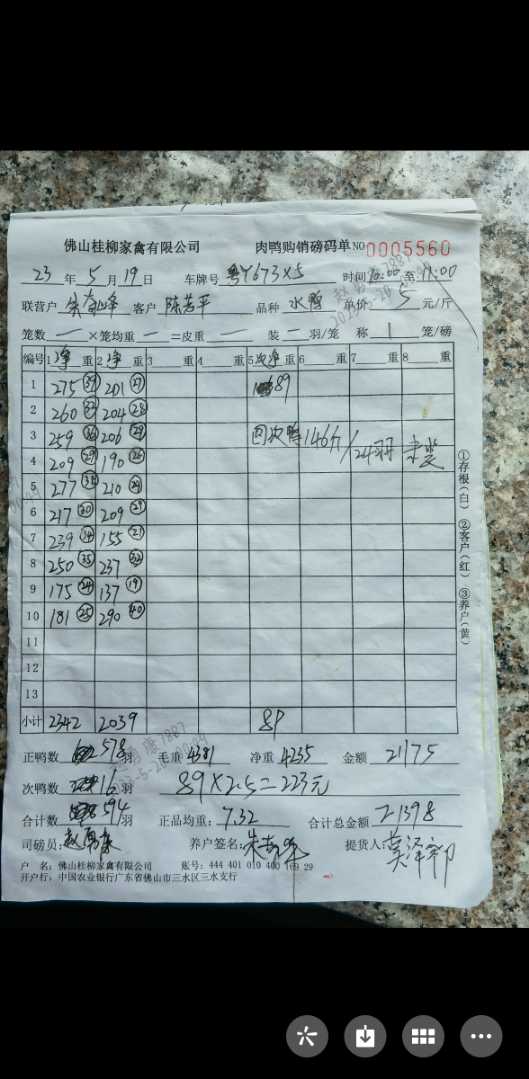 佛山桂柳家禽有限公司 肉鸭购销磅码单 NO 0005560
23 年 5 月 19 日 车牌号 粤Y673X5 时间 至 11:00
联营户 客户 陈芳平 品种 水鸭 单价 5 元/斤
笼数 一 ×笼均重 一 =皮重 一 装 一 羽/笼 称 1 笼/磅
编号 1 净 重 2 净 重 3 重 4 重 5 次净 重 6 重 7 重 8 重
1 275 39 201 27 89
2 260 37 204 28
3 259 36 206 28 回次鸭146斤/24羽
4 209 29 190 26
5 277 38 210 29
6 217 30 209 29
7 239 34 155 21
8 250 35 237
9 175 24 137 19
10 181 25 290 40
11
12
13
小计 2342 2039 89
正鸭数 578 羽 毛重 4381 净重 4235 金额 21175
次鸭数 16 羽 89×2.5=223元
合计数 594 /羽 正品均重: 7.32 合计总金额 21398
司磅员: 赵勇康 养户签名: 提货人:
户 名: 佛山桂柳家禽有限公司 账号: 444 401 010 400 169 29
开户行: 中国农业银行广东省佛山市三水区三水支行
①存根(白) ②客户(红) ③养户(黄)